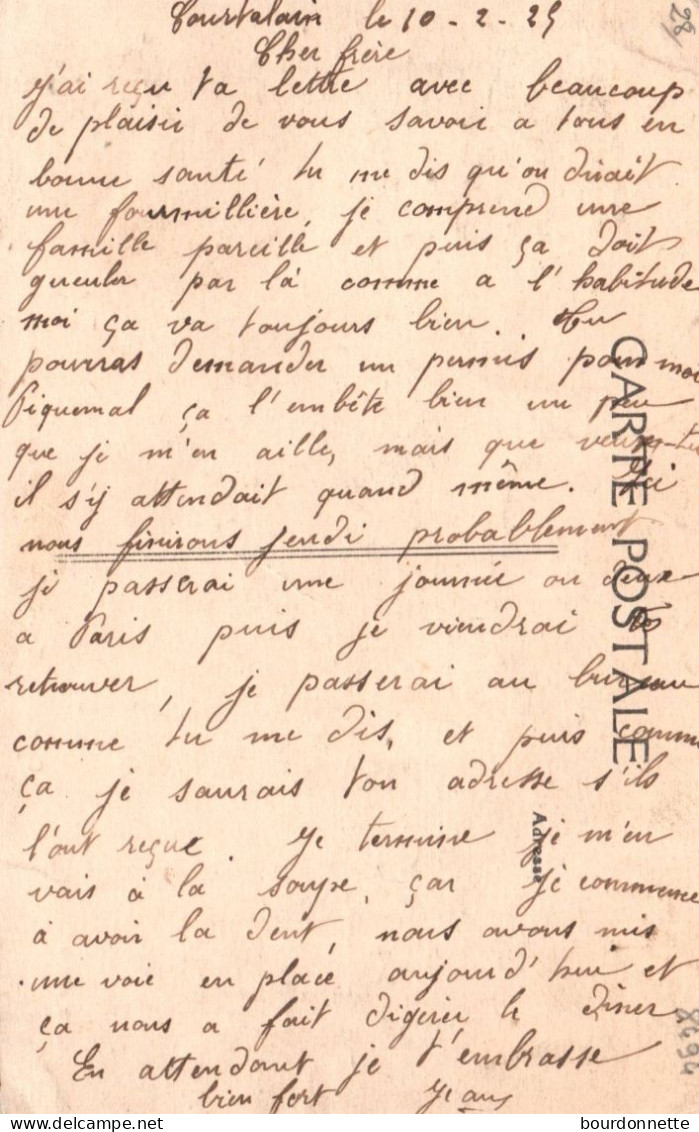 Courtalain le 10-2-25
Cher frère
j'ai reçu ta lettre avec beaucoup
de plaisir de vous savoir a tous en
bonne santé tu me dis qu'on dirait
une fourmillière, je comprend une
famille pareille et puis ça doit
gueuler par là comme a l'habitude
moi ça va toujours bien. Tu
pourras demander un permis pour moi
Piquemal ça l'embête bien un peu
que je m'en aille, mais que veux-tu
il s'y attendait quand même. Ici
nous finirons jeudi probablement
je passerai une journée ou deux
a Paris puis je viendrai te
retrouver, je passerai au bureau
comme tu me dis, et puis comme
ça je saurais ton adresse s'ils
l'ont reçue. Je termine je m'en
vais à la soupe, çar je commence
à avoir la dent, nous avons mis
une voie en place aujourd'hui et
ça nous a fait digérer le diner
En attendant je t'embrasse
bien fort Jean
CARTE POSTALE
Adresse
28
8494
delcampe.net
bourdonnette